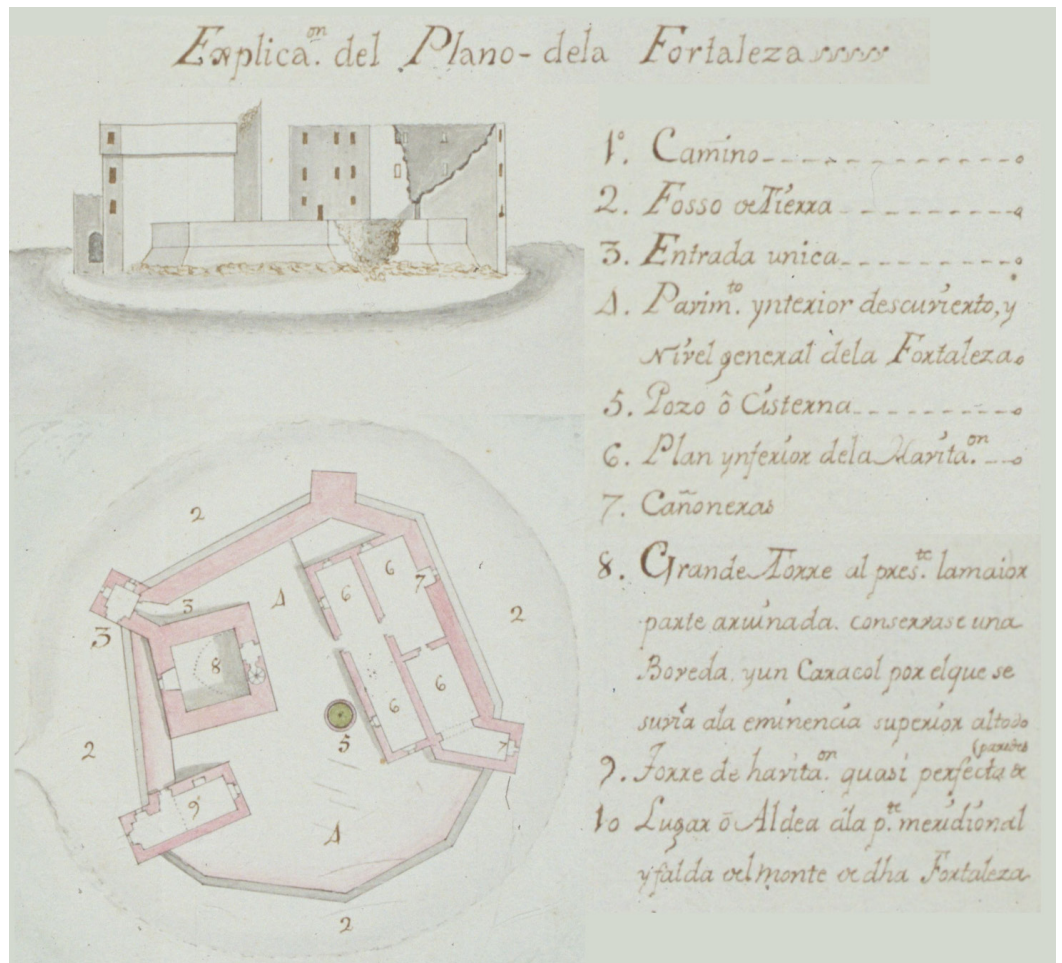 Explica.on del Plano-dela Fortaleza
1º. Camino
2. Fosso de Tierra
3. Entrada unica
4. Pavim.to ynterior descuvierto, y
Nivel general dela Fortaleza.
5. Pozo ô Cisterna
6. Plan ynferior dela Havita.on
7. Cañoneras
8. Grande Torre al pres.te lamaior
parte arruinada. conservase una
Boveda, y un Caracol por elque se
suvia ala eminencia superior altodo
9. Torre de havita.on quasi perfecta de
(paredes
10 Lugar ô Aldea ála p.te meridional
y falda del monte de dha Fortaleza
2
4
6
6
7
3
3
2
8
6
6
5
2
7
9
4
2